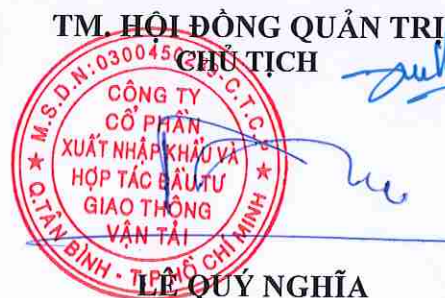 TM. HỘI ĐỒNG QUẢN TRỊ
CHỦ TỊCH
M.S.D.N:0300450 C.T.C.
CÔNG TY
CỔ PHẦN
XUẤT NHẬP KHẨU VÀ
HỢP TÁC ĐẦU TƯ
GIAO THÔNG
VẬN TẢI
Q.TÂN BÌNH - T.P HỒ CHÍ MINH
LÊ QUÝ NGHĨA